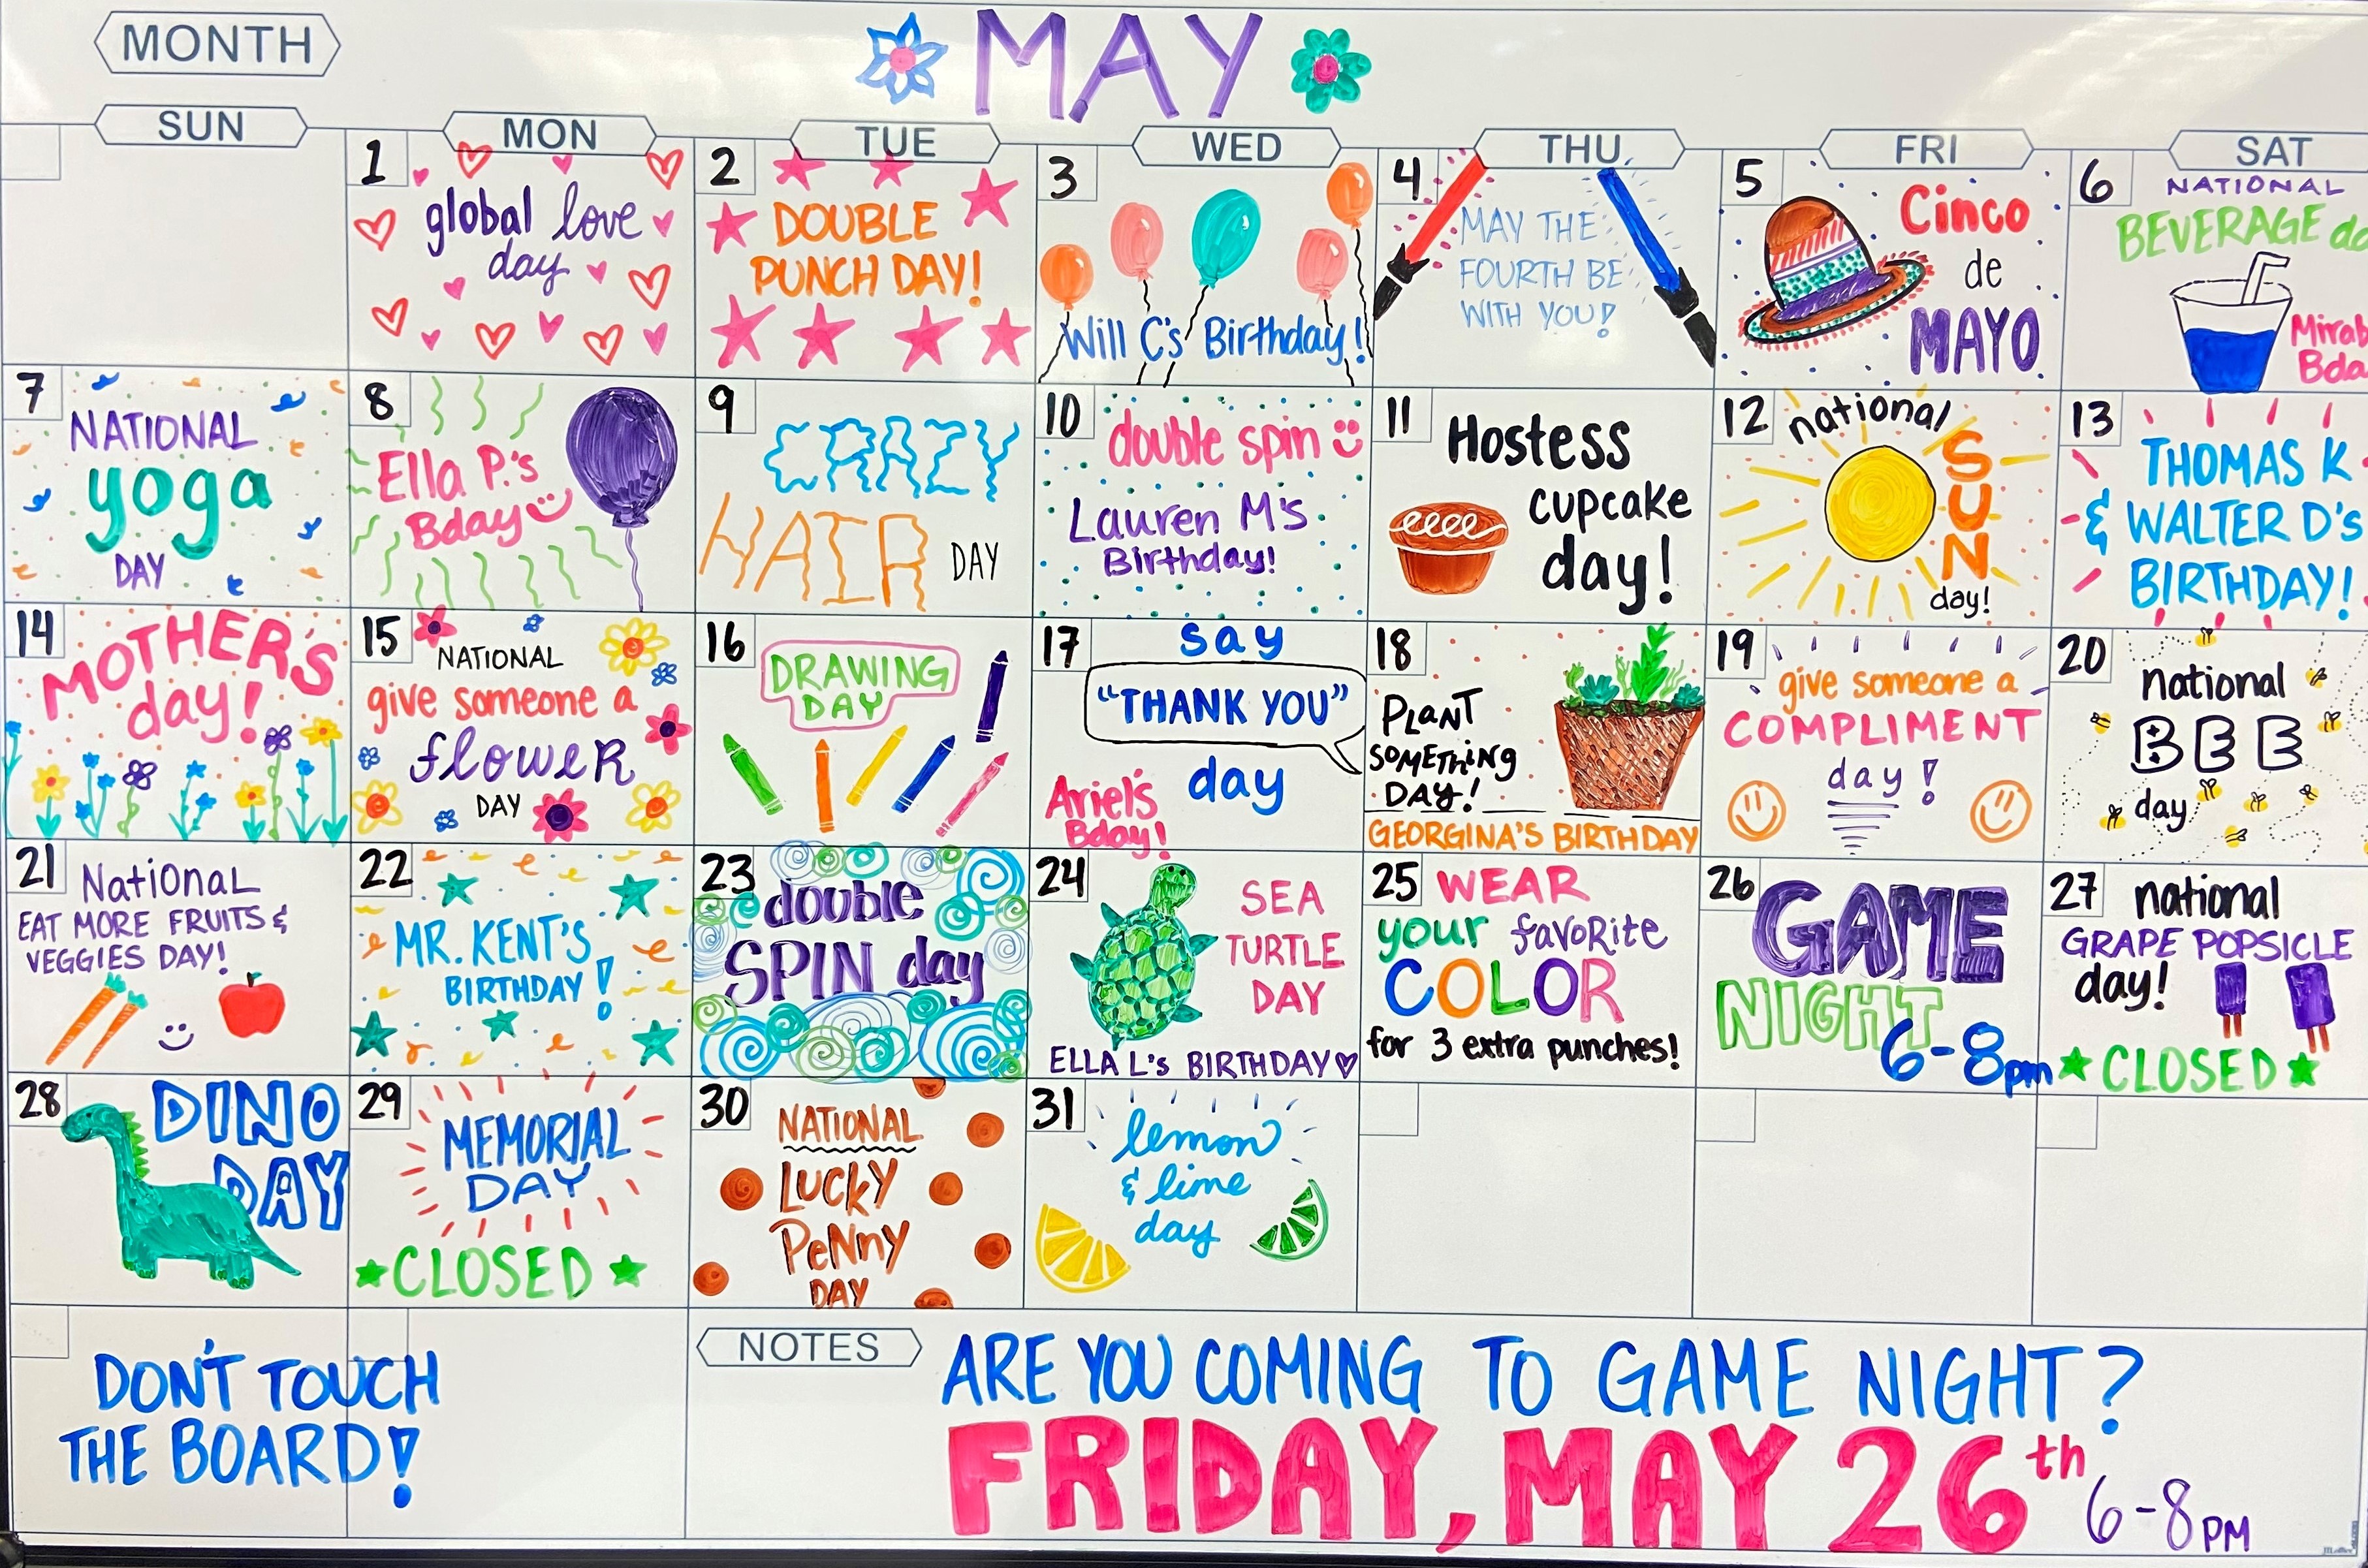 MONTH
MAY
SUN
MON
TUE
WED
THU
FRI
SAT
1
global love
day
2
DOUBLE
PUNCH DAY!
3
Will C's Birthday!
4
MAY THE
FOURTH BE
WITH YOU!
5
Cinco
de
MAYO
6
NATIONAL
BEVERAGE da
Mirab
Bda
7
NATIONAL
yoga
DAY
8
Ella P.'s
Bday
9
CRAZY
HAIR DAY
10
double spin
Lauren M's
Birthday!
11
Hostess
cupcake
day!
12
national
SUN
day!
13
THOMAS K
& WALTER D's
BIRTHDAY!
14
MOTHER'S
day!
15
NATIONAL
give someone a
flower
DAY
16
DRAWING
DAY
17
say
"THANK YOU"
day
Ariel's
Bday!
18
PLANT
SOMETHING
DAY!
GEORGINA'S BIRTHDAY
19
give someone a
COMPLIMENT
day!
20
national
BEE
day
21
National
EAT MORE FRUITS &
VEGGIES DAY!
22
MR. KENT'S
BIRTHDAY!
23
double
SPIN day
24
SEA
TURTLE
DAY
ELLA L's BIRTHDAY
25
WEAR
your favorite
COLOR
for 3 extra punches!
26
GAME
NIGHT
6-8pm
27
national
GRAPE POPSICLE
day!
CLOSED
28
DINO
DAY
29
MEMORIAL
DAY
CLOSED
30
NATIONAL
LUCKY
PENNY
DAY
31
lemon
& lime
day
DON'T TOUCH
THE BOARD!
NOTES
ARE YOU COMING TO GAME NIGHT?
FRIDAY, MAY 26th
6-8PM